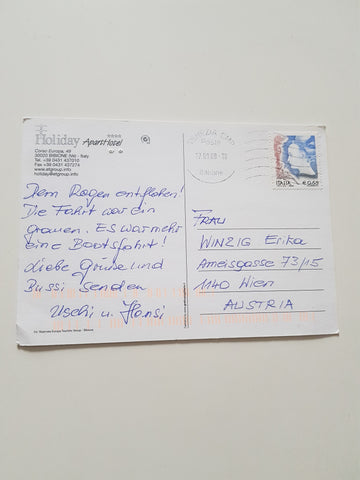 Holiday
Aparthotel
Corso Europa, 49
30020 BIBIONE (Ve) - Italy
Tel. +39 0431 437010
Fax +39 0431 437274
www.etgroup.info
holiday@etgroup.info
Dem Regen entflohen!
Die Fahrt war ein
grauen. Es war mehr
eine Bootsfahrt!
Liebe Grüsse und
Bussi senden
Uschi u. Hansi
VENEZIA CMP
Poste
ITALIA € 0,65
FRAU
WINZIG Erika
Ameisgasse 73/15
1140 Wien
AUSTRIA